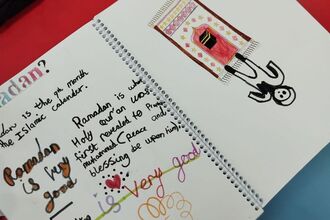 adan?
is the 9th month
the Islamic calendar.
Ramadan is w
Holy Qur'an was
first revealed to Proph
muhammad (peace and
blessing be upon him).
Ramadan
is very
good
is very good